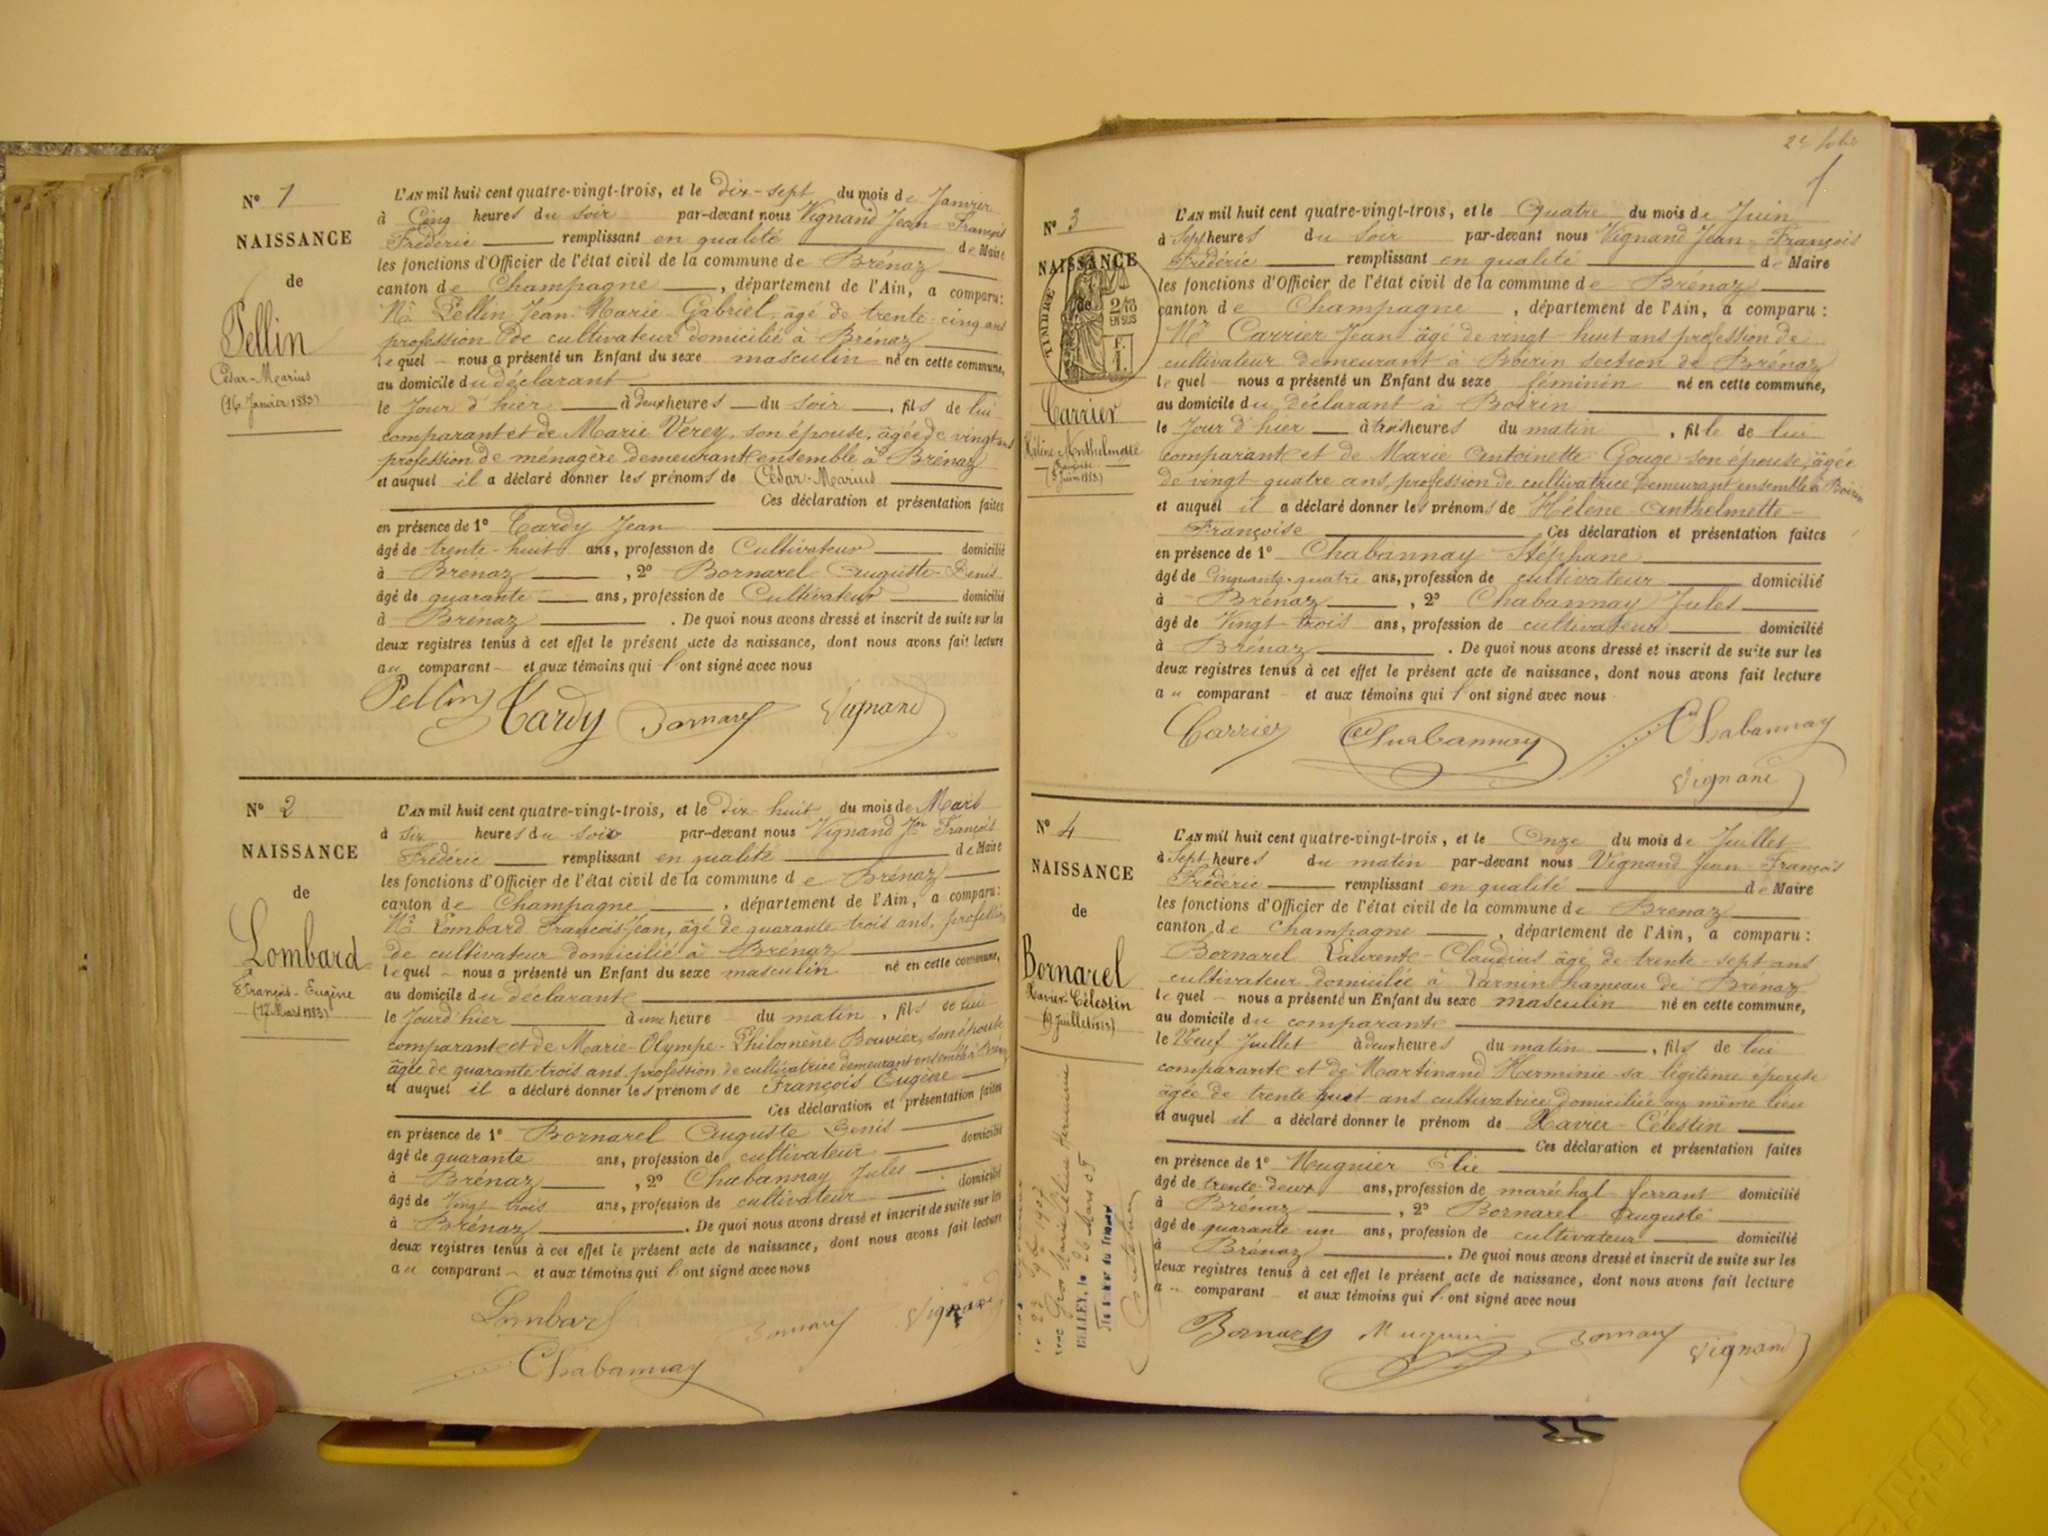 N° 1
NAISSANCE
de
Pellin
César-Marius
(16 Janvier 1883)
L'AN mil huit cent quatre-vingt-trois, et le dix-sept du mois de Janvier
à Cinq heures du soir par-devant nous Vignand Jean-François
Frédéric remplissant en qualité de Maire
les fonctions d'Officier de l'état civil de la commune de Brénaz
canton de Champagne, département de l'Ain, a comparu:
Mr Pellin Jean-Marie-Gabriel, âgé de trente-cinq ans
profession de cultivateur domicilié à Brénaz
Lequel nous a présenté un Enfant du sexe masculin né en cette commune,
au domicile du déclarant
le Jour d'hier à deux heures du soir, fils de lui
comparant et de Marie Vérey, son épouse, âgée de vingt ans
profession de ménagère demeurant ensemble à Brénaz
et auquel il a déclaré donner les prénoms de César-Marius
Ces déclaration et présentation faites
en présence de 1° Tardy Jean
âgé de trente-huit ans, profession de Cultivateur domicilié
à Brenaz, 2° Bornarel Auguste-Denis
âgé de quarante ans, profession de Cultivateur domicilié
à Brénaz. De quoi nous avons dressé et inscrit de suite sur les
deux registres tenus à cet effet le présent acte de naissance, dont nous avons fait lecture
au comparant et aux témoins qui l'ont signé avec nous
Pellin Tardy Bornarel Vignand
N° 2
NAISSANCE
de
Lombard
François-Eugène
(17 Mars 1883)
L'AN mil huit cent quatre-vingt-trois, et le dix-huit du mois de Mars
à Six heures du soir par-devant nous Vignand Jn François
Frédéric remplissant en qualité de Maire
les fonctions d'Officier de l'état civil de la commune de Brénaz
canton de Champagne, département de l'Ain, a comparu:
Mr Lombard François-Jean, âgé de quarante-trois ans, profession
de cultivateur domicilié à Brénaz
lequel nous a présenté un Enfant du sexe masculin né en cette commune,
au domicile du déclarant
le Jour d'hier à une heure du matin, fils de lui
comparant et de Marie-Olympe-Philomène Bouvier, son épouse
âgée de quarante-trois ans, profession de cultivatrice demeurant ensemble à Brénaz
et auquel il a déclaré donner les prénoms de François Eugène
Ces déclaration et présentation faites
en présence de 1° Bornarel Auguste Denis
âgé de quarante ans, profession de cultivateur domicilié
à Brénaz, 2° Chabannay Jules
âgé de Vingt trois ans, profession de cultivateur domicilié
à Brénaz. De quoi nous avons dressé et inscrit de suite sur les
deux registres tenus à cet effet le présent acte de naissance, dont nous avons fait lecture
au comparant et aux témoins qui l'ont signé avec nous
Lombard Bornarel Vignand
Chabannay
2e folio
1
N° 3
NAISSANCE
de
TIMBRE
2/10
EN SUS
F.
1.
Carrier
Hélène Anthelmette
Françoise
(3 Juin 1883)
L'AN mil huit cent quatre-vingt-trois, et le Quatre du mois de Juin
à Sept heures du Soir par-devant nous Vignand Jean-François
Frédéric remplissant en qualité de Maire
les fonctions d'Officier de l'état civil de la commune de Brénaz
canton de Champagne, département de l'Ain, a comparu:
Mr Carrier Jean âgé de vingt-huit ans profession de
cultivateur demeurant à Boirin section de Brénaz
lequel nous a présenté un Enfant du sexe féminin né en cette commune,
au domicile du déclarant à Boirin
le Jour d'hier à trois heures du matin, fille de lui
comparant et de Marie Antoinette Gouge son épouse, âgée
de vingt-quatre ans, profession de cultivatrice demeurant ensemble à Boirin
et auquel il a déclaré donner les prénoms de Hélène-Anthelmette-
Françoise Ces déclaration et présentation faites
en présence de 1° Chabannay Stéphane
âgé de Cinquante-quatre ans, profession de cultivateur domicilié
à Brénaz, 2° Chabannay Jules
âgé de Vingt-trois ans, profession de cultivateur domicilié
à Brénaz. De quoi nous avons dressé et inscrit de suite sur les
deux registres tenus à cet effet le présent acte de naissance, dont nous avons fait lecture
au comparant et aux témoins qui l'ont signé avec nous
Carrier Chabannay Chabannay
Vignand
N° 4
NAISSANCE
de
Bornarel
Xavier-Célestin
(9 Juillet 1883)
BELLEY, le 26 Mars 05
L'AN mil huit cent quatre-vingt-trois, et le Onze du mois de Juillet
à Sept heures du matin par-devant nous Vignand Jean-François
Frédéric remplissant en qualité de Maire
les fonctions d'Officier de l'état civil de la commune de Brenaz
canton de Champagne, département de l'Ain, a comparu:
Bornarel Laurent-Claudius âgé de trente-sept ans
cultivateur domicilié à Varnin hameau de Brénaz
lequel nous a présenté un Enfant du sexe masculin né en cette commune,
au domicile du comparant
le Neuf Juillet à deux heures du matin, fils de lui
comparant et de Martinand Herminie sa légitime épouse
âgée de trente huit ans cultivatrice domiciliée au même lieu
et auquel il a déclaré donner le prénom de Xavier-Célestin
Ces déclaration et présentation faites
en présence de 1° Mugnier Elie
âgé de trente-deux ans, profession de maréchal-ferrant domicilié
à Brénaz, 2° Bornarel Auguste
âgé de quarante un ans, profession de cultivateur domicilié
à Brénaz. De quoi nous avons dressé et inscrit de suite sur les
deux registres tenus à cet effet le présent acte de naissance, dont nous avons fait lecture
au comparant et aux témoins qui l'ont signé avec nous
Bornarel Mugnier Bornarel Vignand